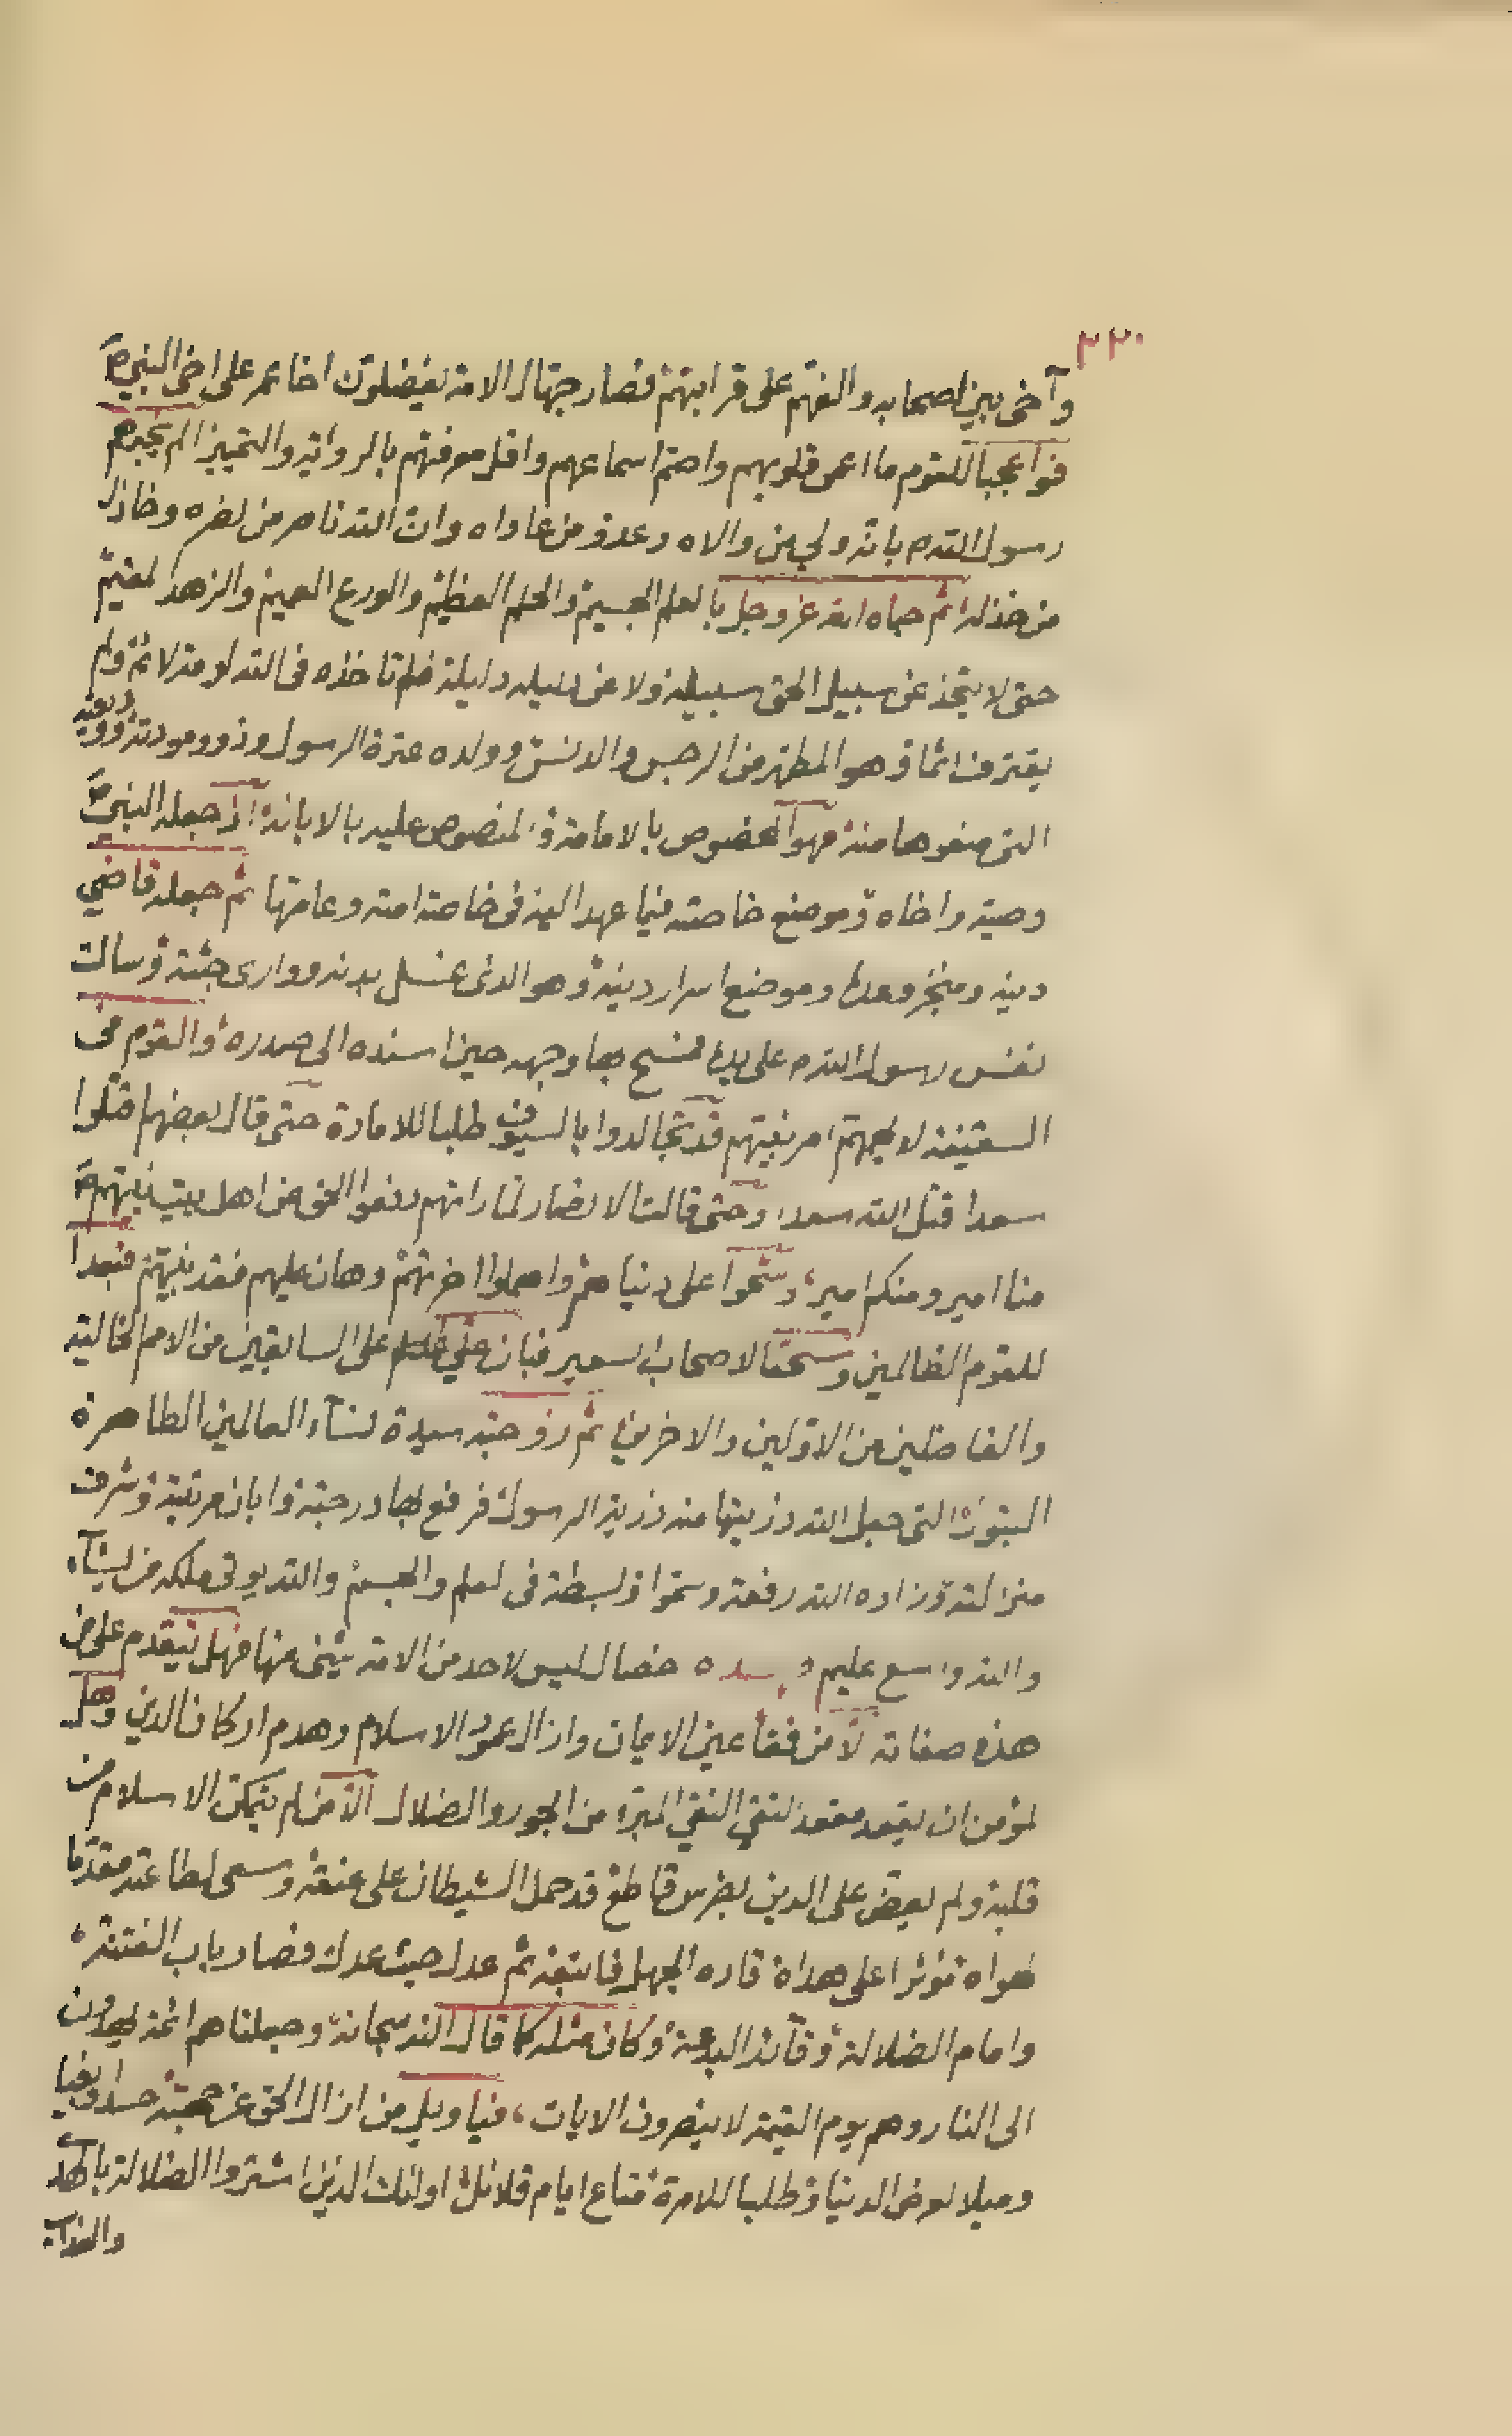 ٢٢٠
وآخى بين اصحابه والفهم على قرابتهم فصار جهال الامة يفضلون اخا عمر على اخى النبي ص
فوا عجبا للقوم ما اعمى قلوبهم واصم اسماعهم واقل معرفتهم بالرواية والتمييز الم يخبرهم
رسول الله ص بانه ولي من والاه وعدو من عاداه وان الله ناصر من نصره وخاذل
من خذله ثم حباه الله عز وجل بالعلم الجسيم والحلم العظيم والورع العميم والزهد المقيم
حتى لا يتخذ غير سبيل الحق سبيله ولا غير دليله دليله فلم تاخذه فى الله لومة لائم ولم
يقترف اثما وهو المطهر من الرجس والدنس وولده عترة الرسول وذوو مودته وديعته
التى منعوها منه فهو المخصوص بالامامة والمنصوص عليه بالابانة اذ جعله النبي ص
وصيه واخاه وموضع خاصته فيما عهد اليه فى خاصة امته وعامتها ثم جعله قاضي
دينه ومنجز وعده وموضع اسرار دينه وهو الذى غسل بدنه ووارى جثته وسالت
نفس رسول الله ص على يده فمسح بها وجهه حين اسنده الى صدره والقوم فى
السقيفة لا يهمهم امر نبيهم قد تجالدوا بالسيوف طلبا للامارة حتى قال بعضهم اقتلوا
سعدا قتل الله سعدا وحتى قالت الانصار لما راتهم دفعوا الحق عن اهل بيت نبيهم ص
منا امير ومنكم امير وشحوا على دنياهم واهملوا اخرتهم وهان عليهم فقد نبيهم فبعدا
للقوم الظالمين وسحقا لاصحاب السعير فبان على على السابقين من الامم الخالية
والفاضلين من الاولين والاخرين ثم زوجته سيدة نساء العالمين الطاهرة
البتول التى جعل الله ذريتها منه ذرية الرسول فرفع بها درجته وابان مرتبته وشرف
منزلته وزاده الله رفعة وسموا وبسطة فى العلم والجسم والله يوتى ملكه من يشآء
والله واسع عليم خصال ليس لاحد من الامة شئ منها فهل يتقدم على من
هذه صفاته الا من فقأ عين الايمان وازال عمود الاسلام وهدم اركان الدين وهل
لمؤمن ان يقعد مقعد التقي النقي المبرء من الجور والضلال الا من لم يتمكن الاسلام من
قلبه ولم يعض على الدين بضرس قاطع قد حمل الشيطان على عنقه وسعى لطاعته مقدما
لهواه مؤثرا على هداه قاده الجهل فاتبعه ثم عدل حيث عدل فصار باب الفتنة
وامام الضلالة وقآئد البدعة وكان مثله كما قال الله سبحانه وجعلناهم ائمة يهدون
الى النار وهم يوم القيمة لا ينصرون الايات، فيا ويل من ازال الحق عن جهته حسدا وبغيا
وميلا لعرض الدنيا وطلبا للامرة متاع ايام قلائل اولئك الذين اشتروا الضلالة بالهدى
والعذاب